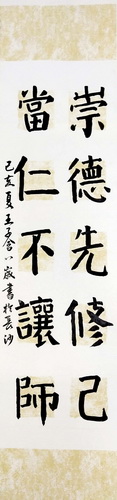 崇德先修己
當仁不讓師
己亥夏王子含八歲書於長沙